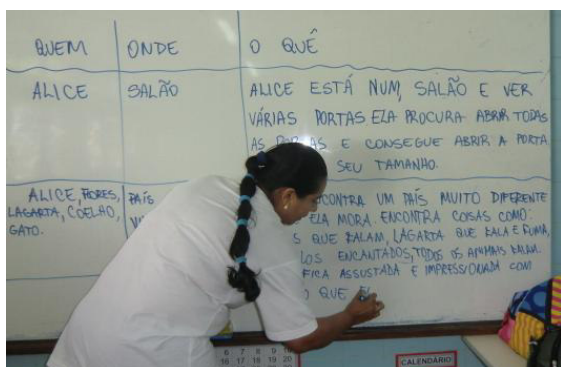 QUEM ONDE O QUÊ
ALICE SALÃO ALICE ESTÁ NUM SALÃO E VER
VÁRIAS PORTAS ELA PROCURA ABRIR TODAS
AS PORTAS E CONSEGUE ABRIR A PORTA
SEU TAMANHO.
ALICE, FLORES, LAGARTA, COELHO, GATO.
PAÍS
UM PAÍS MUITO DIFERENTE
ELA MORA. ENCONTRA COISAS COMO:
QUE FALAM, LAGARTA QUE FALA E FUMA,
ENCANTADOS, TODOS OS ANIMAIS FALAM.
FICA ASSUSTADA E IMPRESSIONADA COM
O QUE
6 7 8 9
16 17 18 19 20
CALENDÁRIO